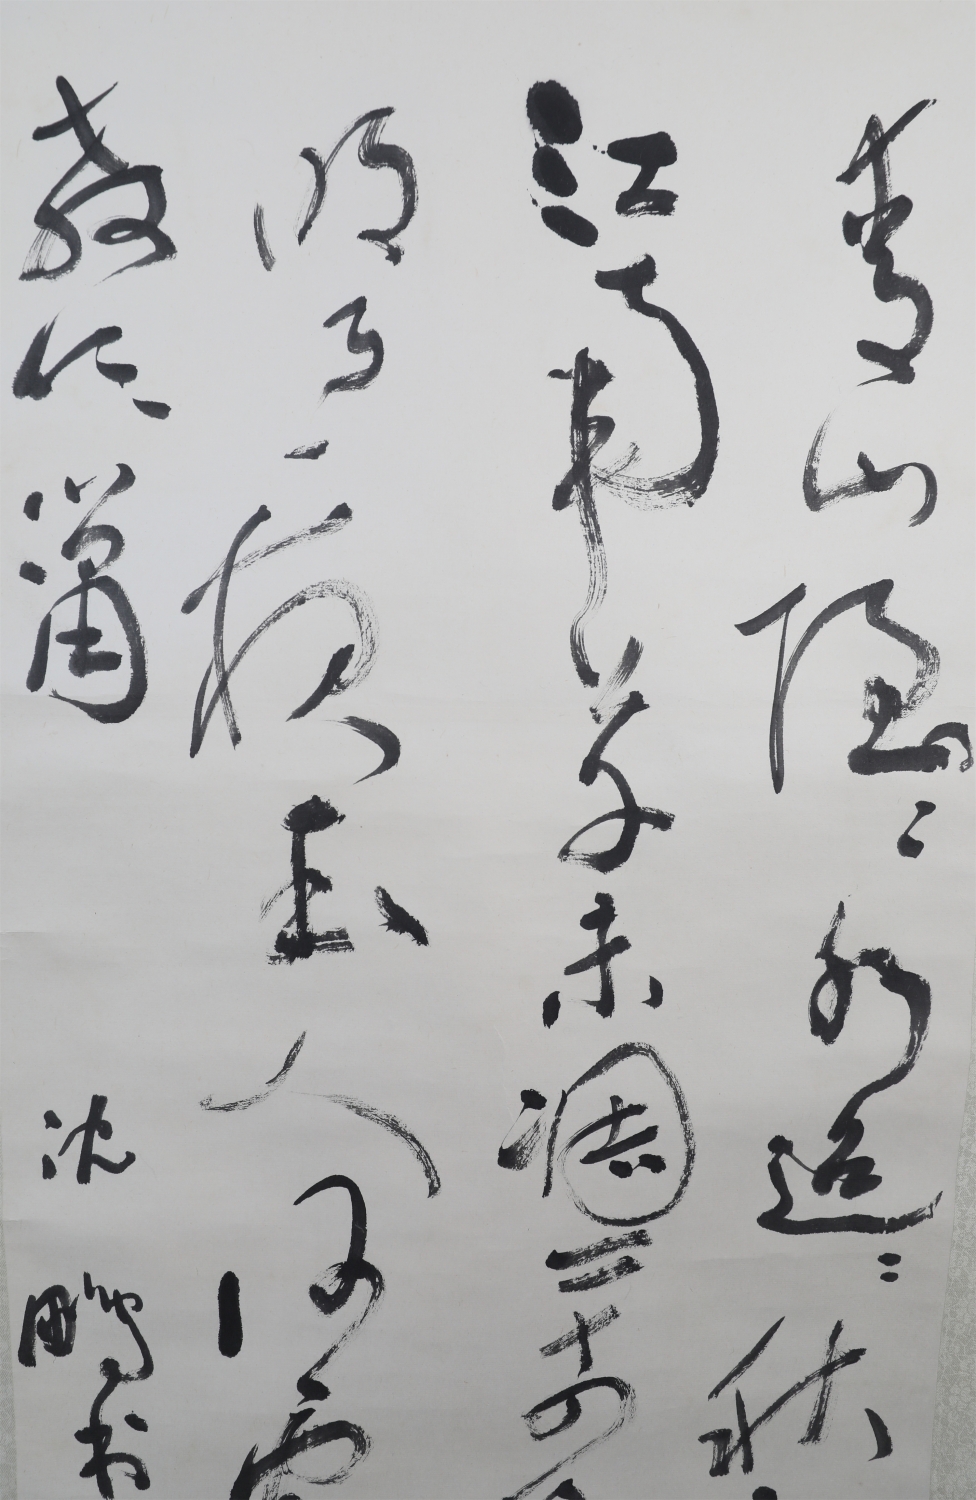 青山隐隐水迢迢秋
江南草未凋二十四
明月夜玉人何处
教吹箫
沈鹏书